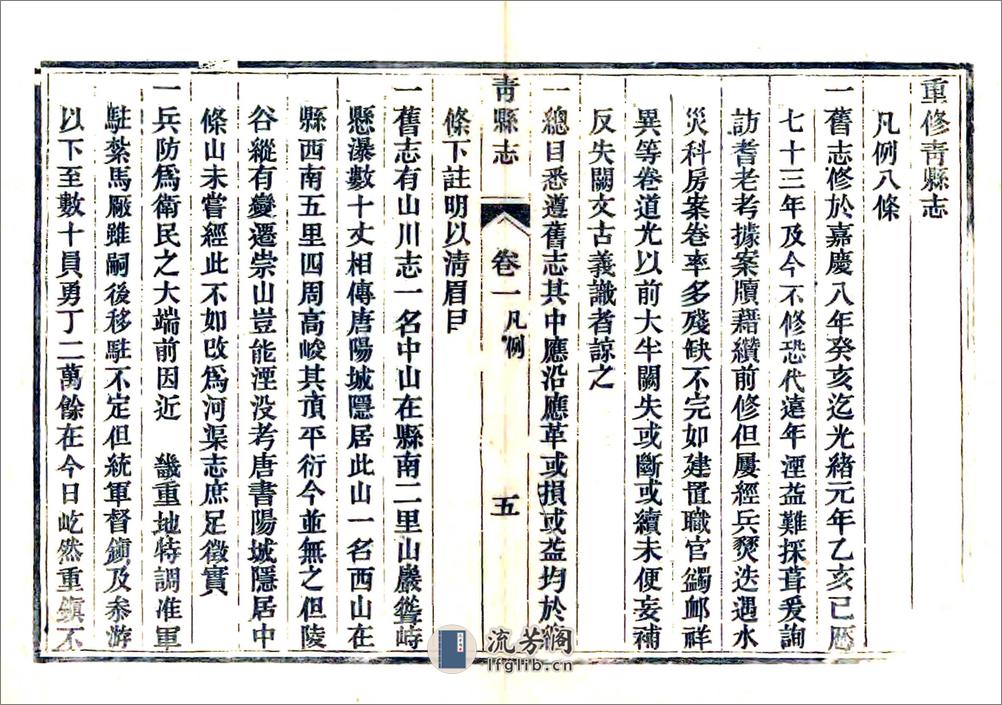 重修青縣志
凡例八條
一舊志修於嘉慶八年癸亥迄光緒元年乙亥已歷
七十三年及今不修恐代遠年湮益難採葺爰詢
訪耆老考據案牘藉纘前修但屢經兵燹迭遇水
災科房案卷率多殘缺不完如建置職官蠲卹祥
異等卷道光以前大半闕失或斷或續未便妄補
反失闕文古義識者諒之
一總目悉遵舊志其中應沿應革或損或益均於
條下註明以清眉目
青縣志
卷一
凡例
五
一舊志有山川志一名中山在縣南二里山巖聳峙
懸瀑數十丈相傳唐陽城隱居此山一名西山在
縣西南五里四周高峻其頂平衍今並無之但陵
谷縱有變遷崇山豈能湮没考唐書陽城隱居中
條山未嘗經此不如改爲河渠志庶足徵實
一兵防爲衛民之大端前因近 畿重地特調准軍
駐紮馬厰雖嗣後移駐不定但統軍督鎭及叅游
以下至數十員勇丁二萬餘在今日屹然重鎭不
流芳阁
lfglib.cn